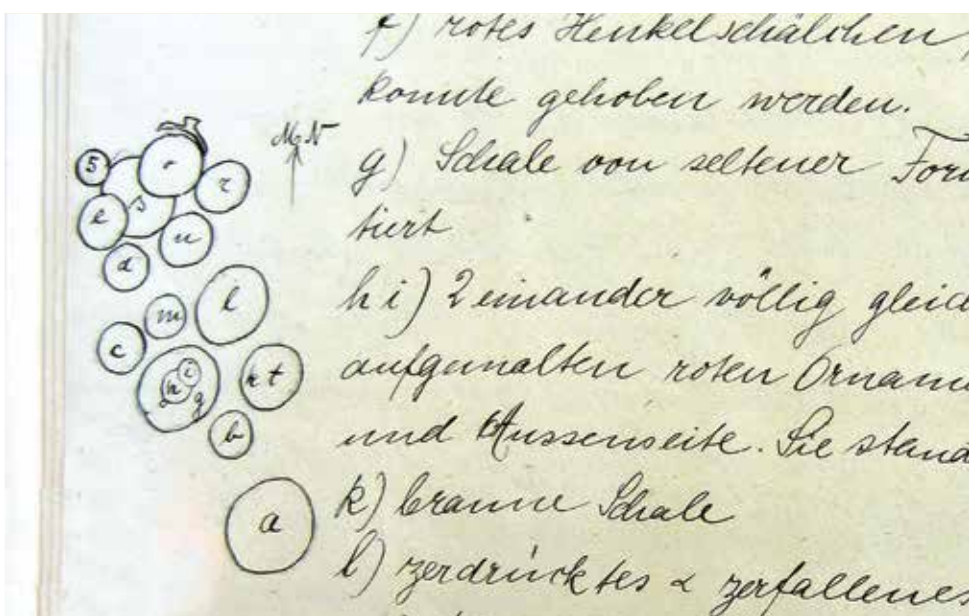 f) rotes Henkelschälchen,
konnte gehoben werden.
g) Schale von seltener
tiert
h i) 2 einander völlig gleic
aufgemalten roten Orname
und Aussenseite. Sie stand
k) braune Schale
l) zerdrücktes & zerfallenes
M. N
5
r
e
s
n
d
m
l
c
h
i
g
k t
b
a